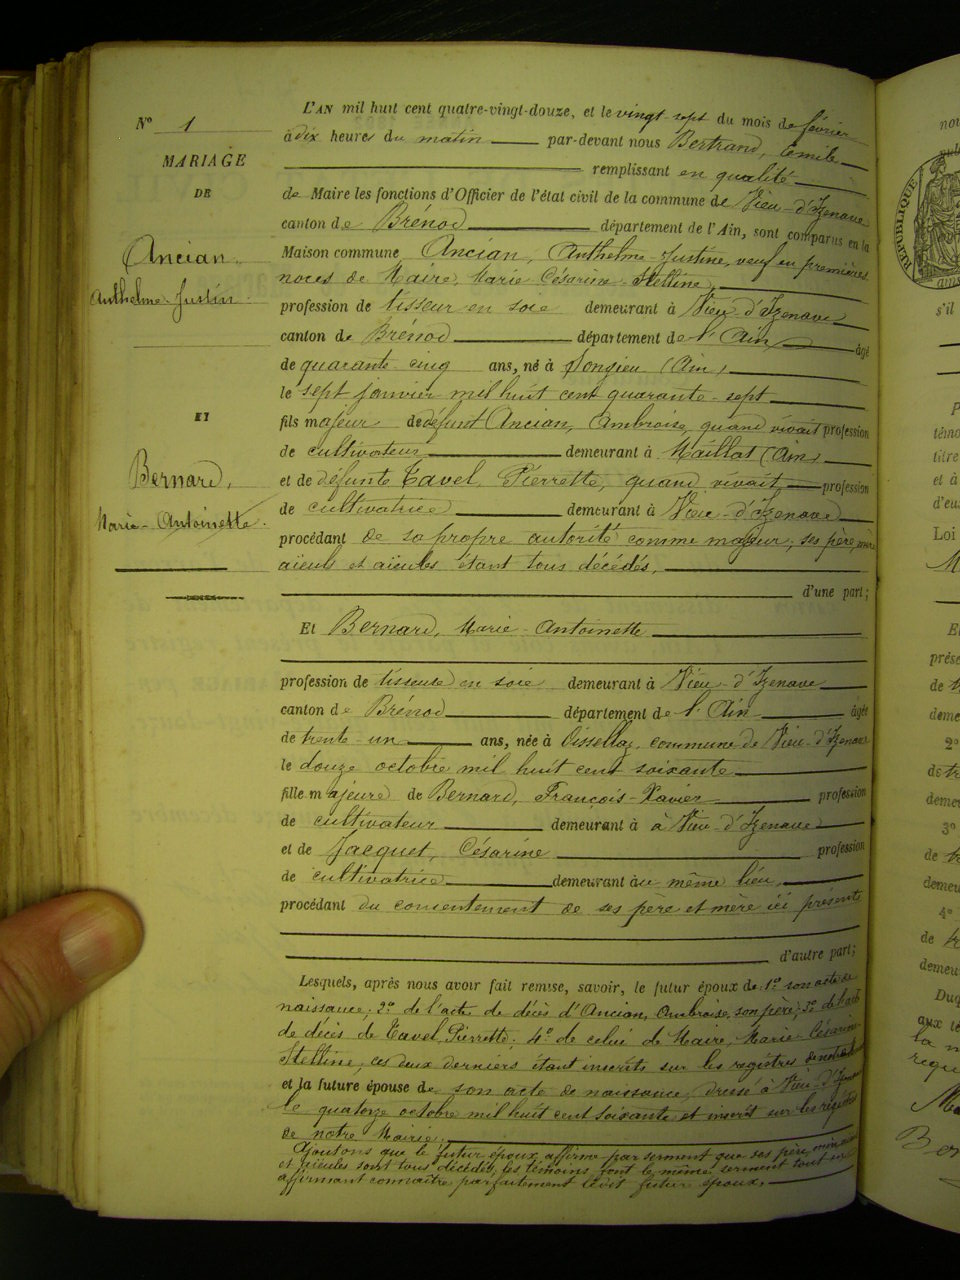 N° 1
MARIAGE
DE
Ancian
Anthelme-Justin
ET
Bernard,
Marie-Antoinette.
L'AN mil huit cent quatre-vingt-douze, et le vingt-sept du mois de février
à dix heures du matin par-devant nous Bertrand, Emile
remplissant en qualité
de Maire les fonctions d'Officier de l'état civil de la commune de Vieu-d'Izenave
canton de Brénod département de l'Ain, sont comparus en la
Maison commune Ancian, Anthelme-Justine, veuf en premières
noces de Maire, Marie Césarine Stelline,
profession de tisseur en soie demeurant à Vieu-d'Izenave
canton de Brénod département de l'Ain âgé
de quarante cinq ans, né à Songieu (Ain)
le sept janvier mil huit cent quarante-sept
fils majeur de défunt Ancian, Ambroise, quand vivait profession
de cultivateur demeurant à Maillat (Ain)
et de défunte Tavel, Pierrette, quand vivait profession
de cultivatrice demeurant à Vieu-d'Izenave
procédant de sa propre autorité comme majeur, ses père, mère
aïeuls et aïeules étant tous décédés,
d'une part;
Et Bernard, Marie-Antoinette
profession de tisseuse en soie demeurant à Vieu-d'Izenave
canton de Brénod département de l'Ain âgée
de trente-un ans, née à Oisselaz, commune de Vieu-d'Izenave
le douze octobre mil huit cent soixante
fille majeure de Bernard, François-Xavier profession
de cultivateur demeurant à à Vieu-d'Izenave
et de Jacquet, Césarine profession
de cultivatrice demeurant au même lieu,
procédant du consentement de ses père et mère ici présents
d'autre part;
Lesquels, après nous avoir fait remise, savoir, le futur époux de 1° son acte de
naissance; 2° de l'acte de décès d'Ancian, Ambroise, son père; 3° de l'acte
de décès de Tavel, Pierrette; 4° de celui de Maire, Marie-Césarine
Stelline, ces deux derniers étant inscrits sur les registres de notre
et la future épouse de son acte de naissance, dressé à Vieu-d'Izenave
le quatorze octobre mil huit cent soixante et inscrit sur les registres
de notre Mairie.
Ajoutons que le futur époux affirme par serment que ses père, mère
et aïeules sont tous décédés, les témoins font le même serment tout en
affirmant connaître parfaitement ledit futur époux.
RÉPUBLIQUE